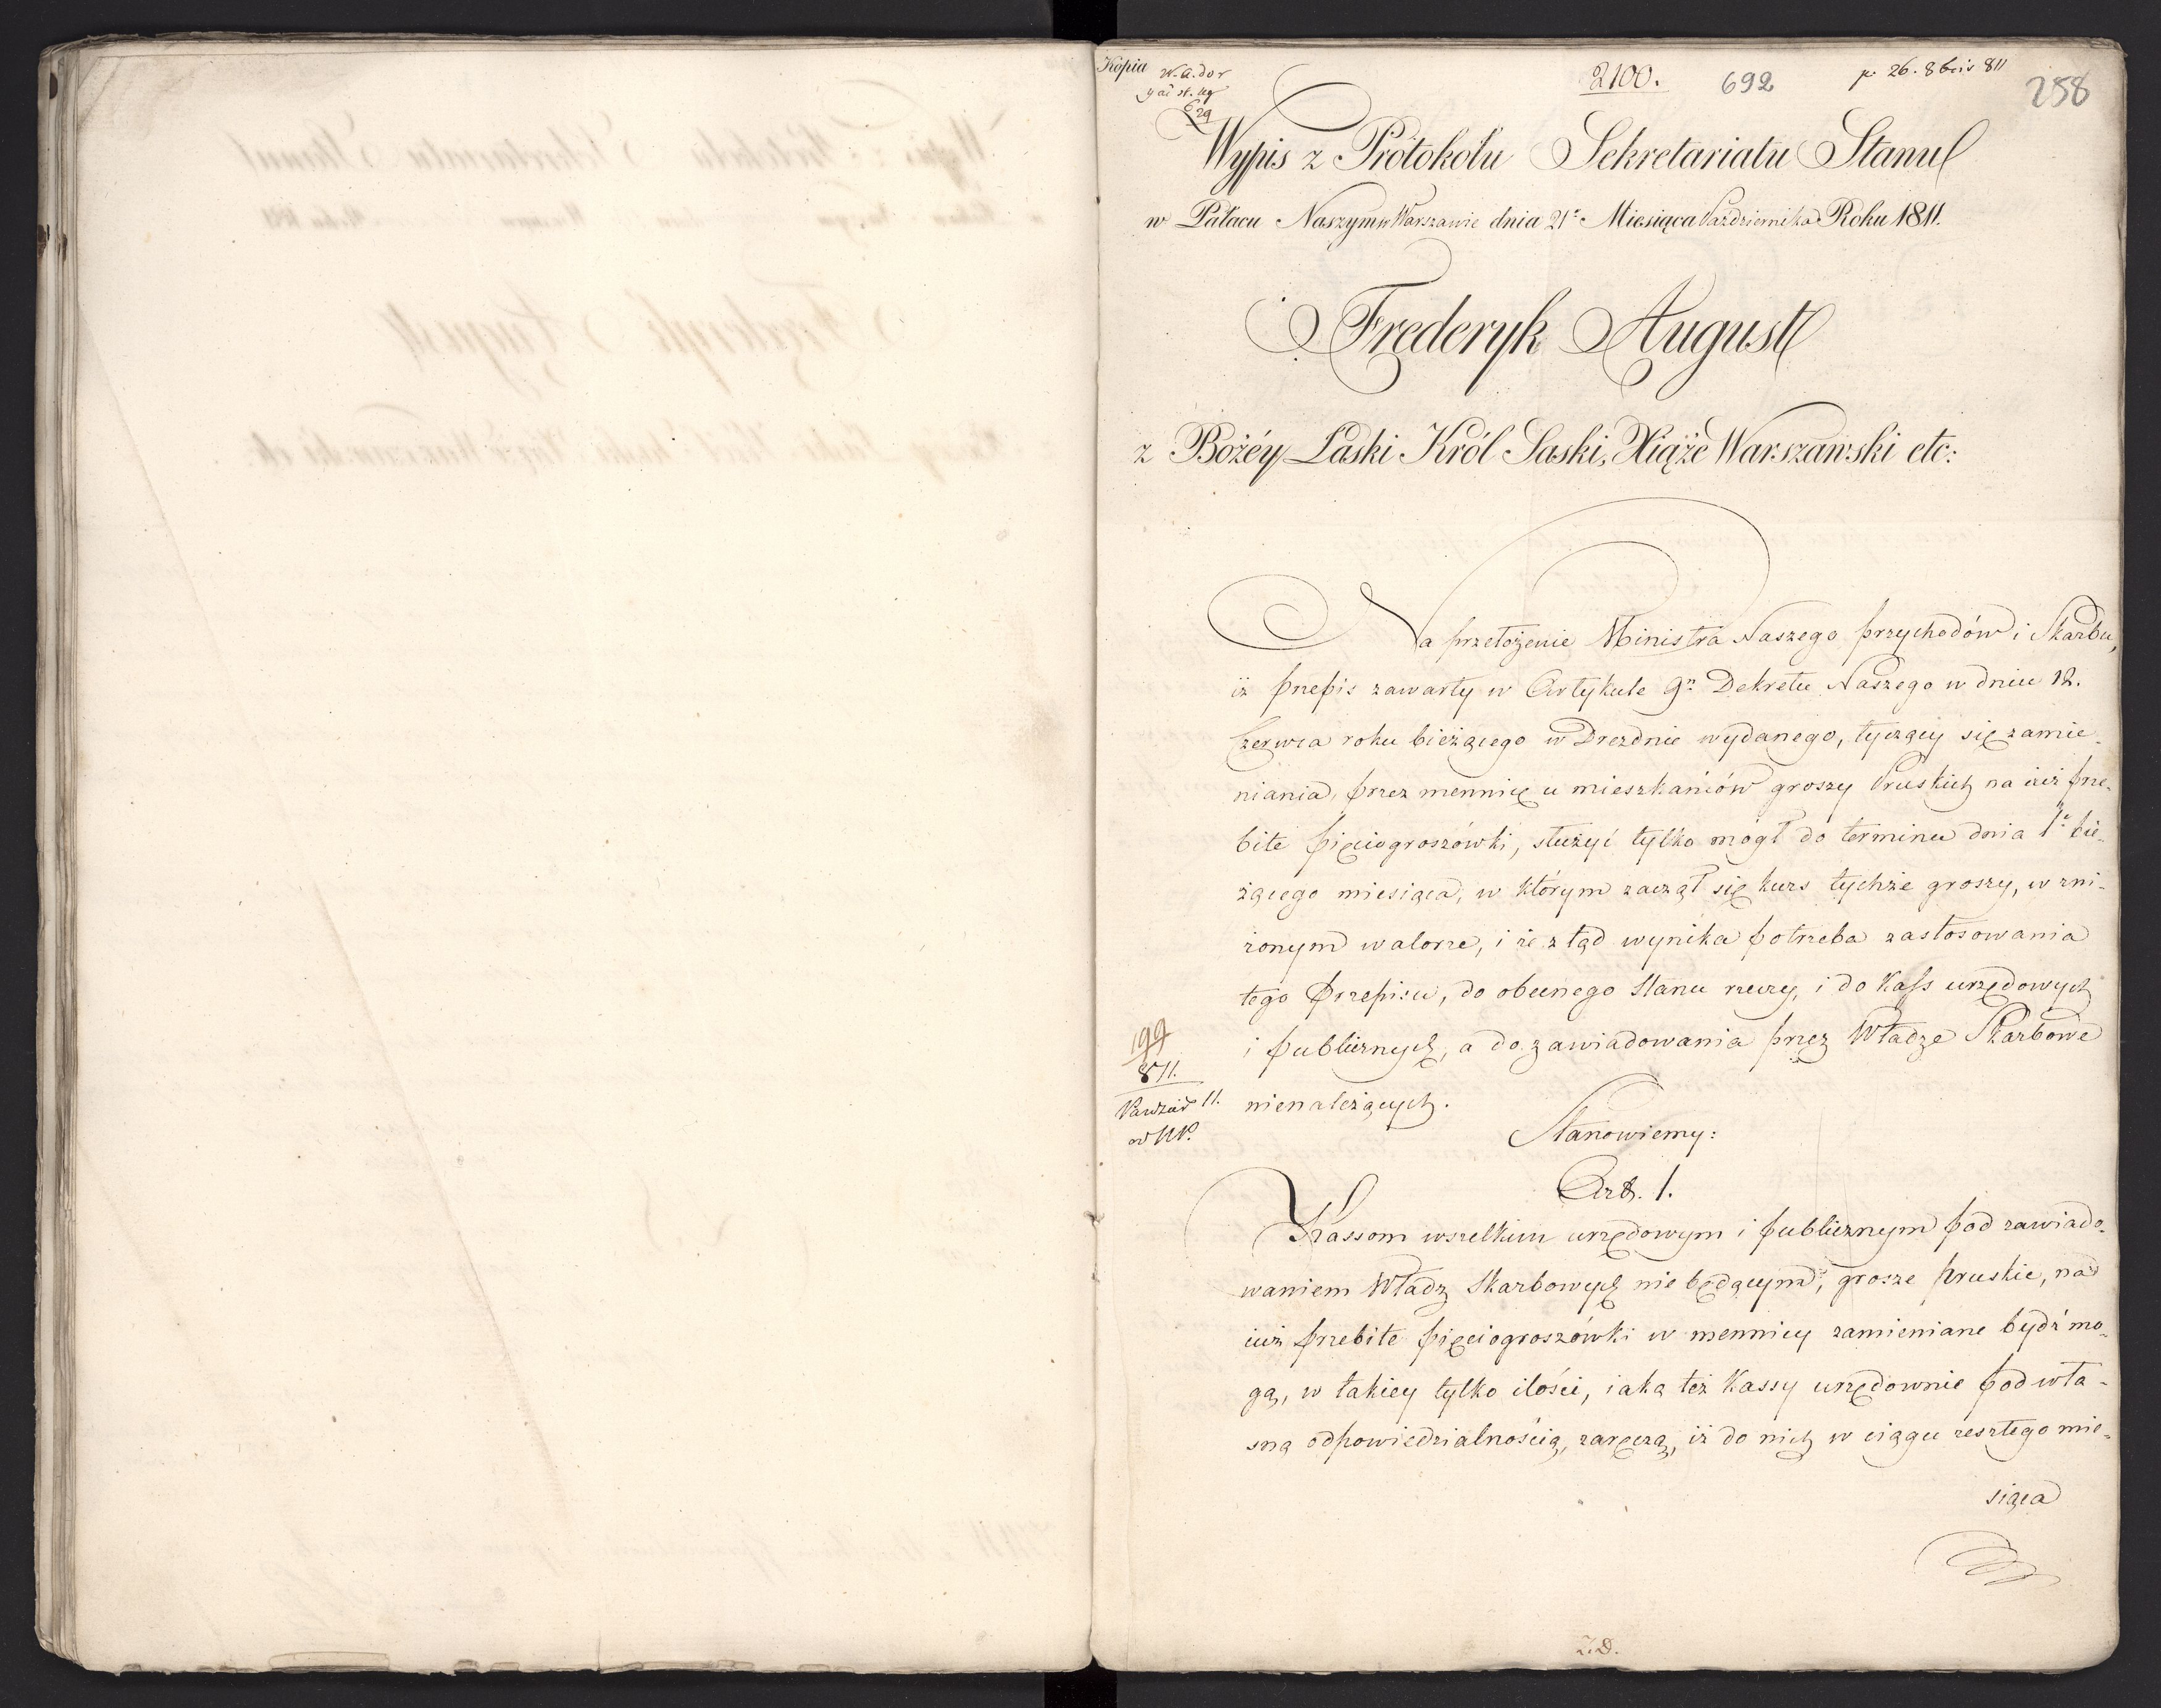 Kopia
2100.
692
p. 26. 8bris 811
258
Wypis z Protokołu Sekretariatu Stanu
w Pałacu Naszym w Warszawie dnia 21º Miesiąca Października Roku 1811.
Frederyk August
z Bożéy Łaski Król Saski, Xiąże Warszawski etc:
Na przełożenie Ministra Naszego przychodów i Skarbu,
iż przepis zawarty w Artykule 9m Dekretu Naszego w dniu 12.
Czerwca roku bieżącego w Dreznie wydanego, tyczący się zamie-
niania, przez mennicę u mieszkańców groszy Pruskich na iuż prze-
bite pięciogroszówki, służyć tylko mógł do terminu dnia 1º bie-
żącego miesiąca, w którym zaczął się kurs tychże groszy, w zni-
żonym walorze, i że ztąd wynika potrzeba zastosowania
tego Przepisu, do obecnego stanu rzeczy, i do Kass urzędowych
i publicznych, a do zawiadowania przez Władze Skarbowe
nienależących.
199
811.
Stanowiemy:
Art. 1.
Kassom wszelkim urzędowym i publicznym pod zawiado-
waniem Władz Skarbowych nie będącym, grosze pruskie, na
iuż przebite pięciogroszówki w mennicy zamieniane bydź mo-
gą, w takiey tylko ilości, iaką też Kassy urzędownie pod wła-
sną odpowiedzialnością, zaręczą, iż do nich w ciągu zeszłego mie-
siąca